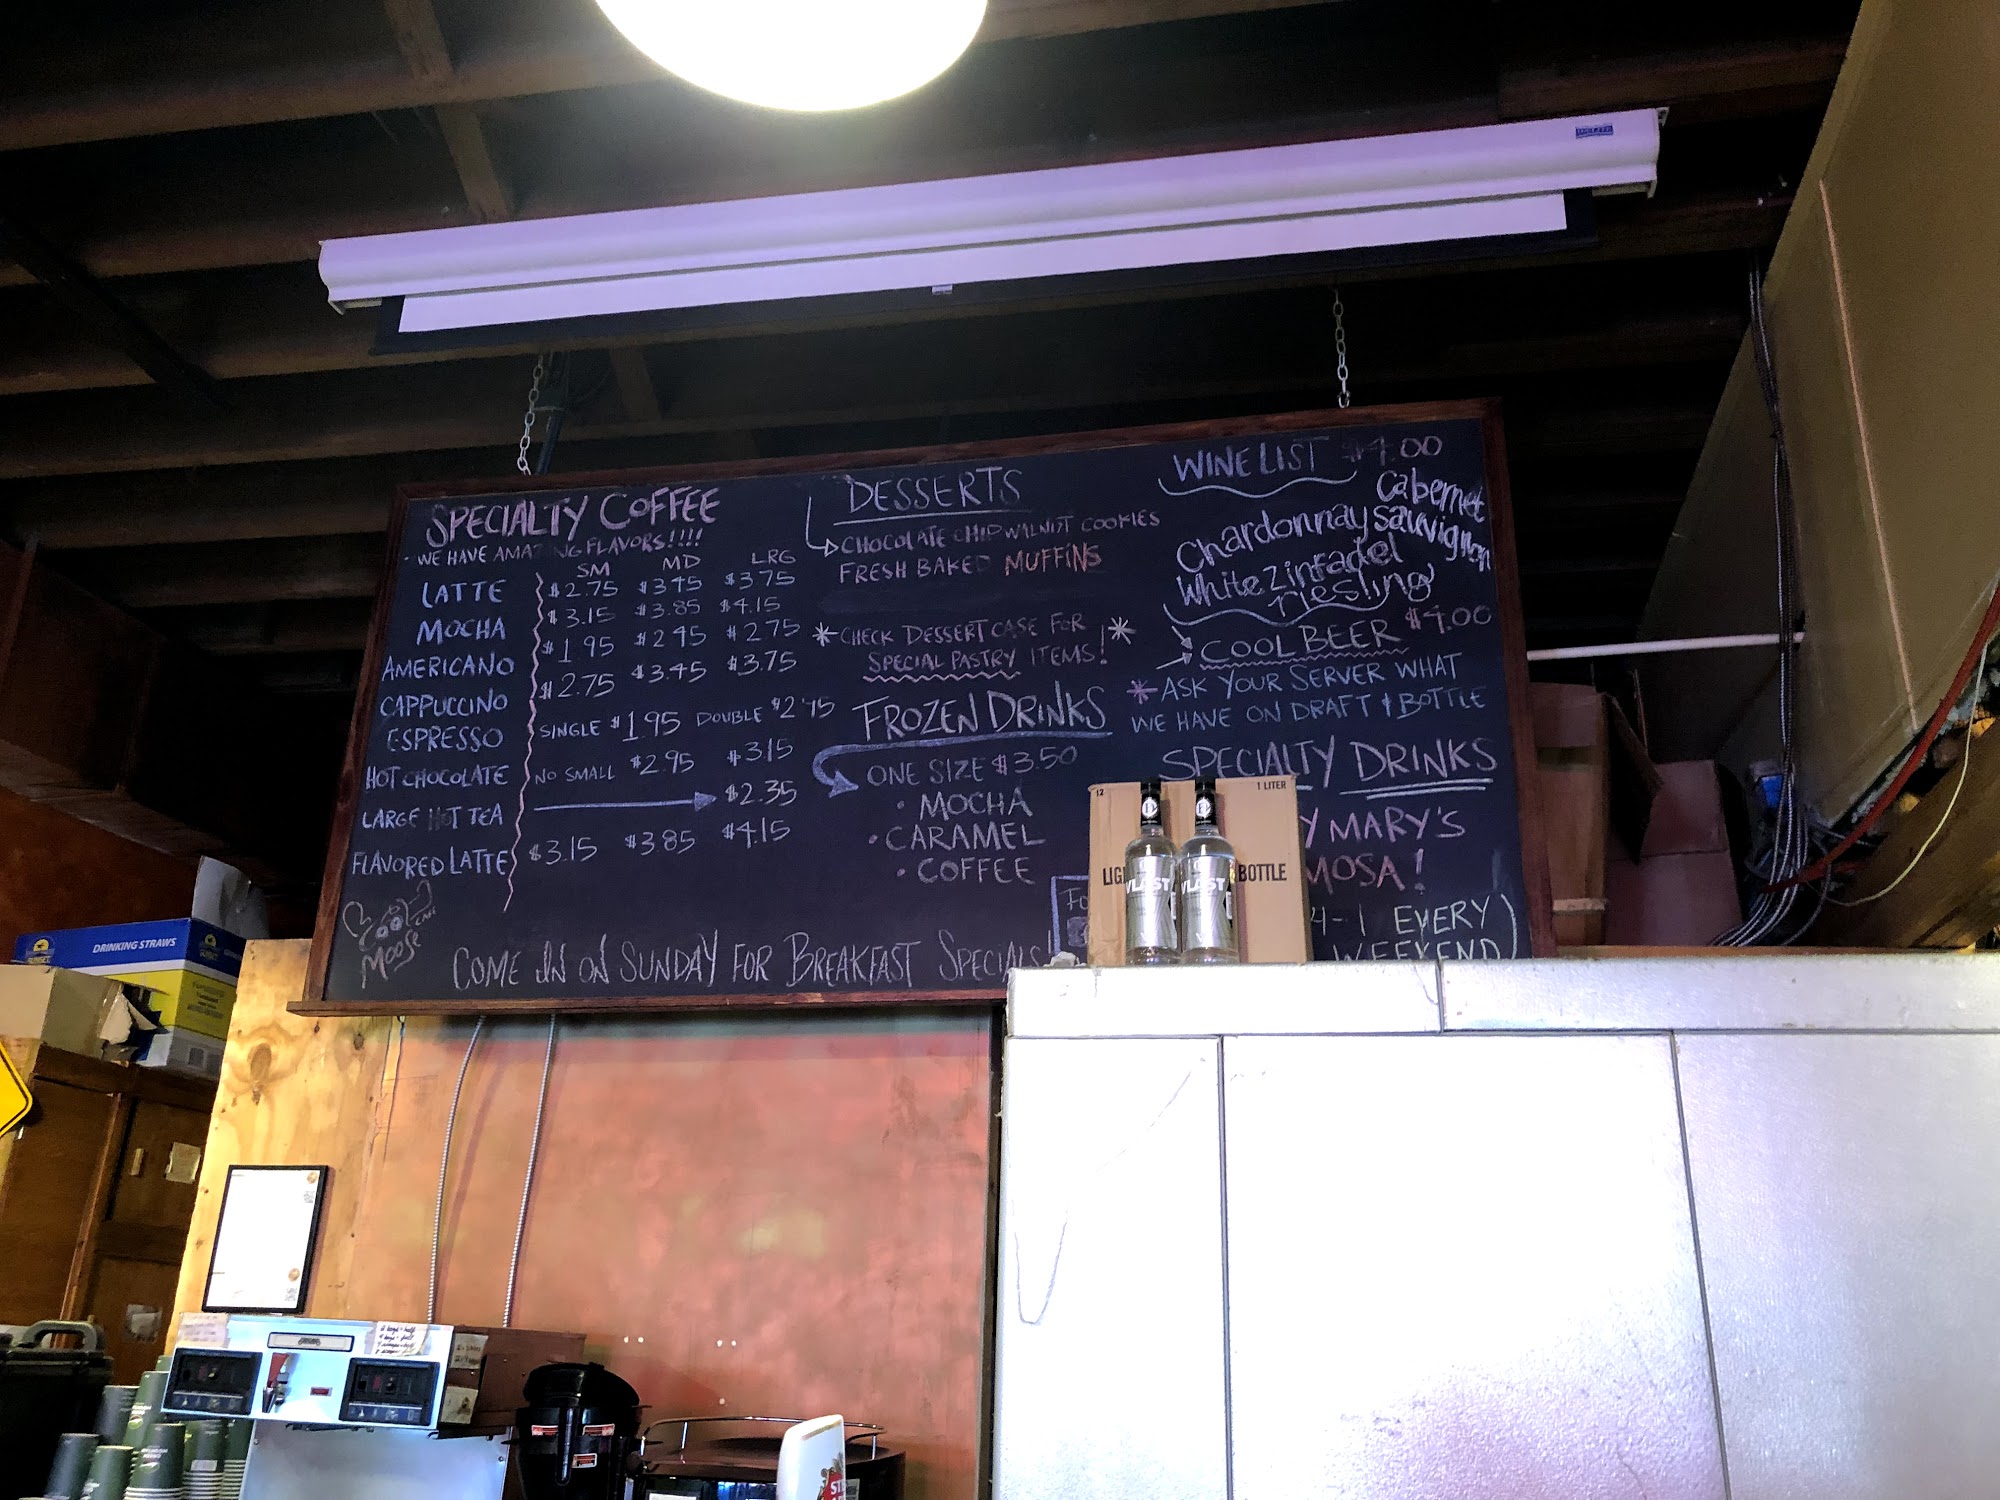 SPECIALTY COFFEE
· WE HAVE AMAZING FLAVORS!!!!
SM MD LRG
LATTE $2.75 $3.45 $3.75
MOCHA $3.15 $3.85 $4.15
AMERICANO $1.95 $2.45 $2.75
CAPPUCCINO $2.75 $3.45 $3.75
ESPRESSO SINGLE $1.95 DOUBLE $2.45
HOT CHOCOLATE NO SMALL $2.95 $3.15
LARGE HOT TEA $2.35
FLAVORED LATTE $3.15 $3.85 $4.15
Moose
CAFE
COME IN ON SUNDAY FOR BREAKFAST SPECIALS!
DESSERTS
CHOCOLATE CHIP WALNUT COOKIES
FRESH BAKED MUFFINS
*CHECK DESSERT CASE FOR
SPECIAL PASTRY ITEMS!*
FROZEN DRINKS
ONE SIZE $3.50
· MOCHA
· CARAMEL
· COFFEE
WINE LIST $4.00
Cabernet
Chardonnay sauvignon
White Zinfadel
riesling
COOL BEER $4.00
*ASK YOUR SERVER WHAT
WE HAVE ON DRAFT & BOTTLE
SPECIALTY DRINKS
Y MARY'S
MOSA!
4-1 EVERY
WEEKEND)
12
1 LITER
BOTTLE
DRINKING STRAWS